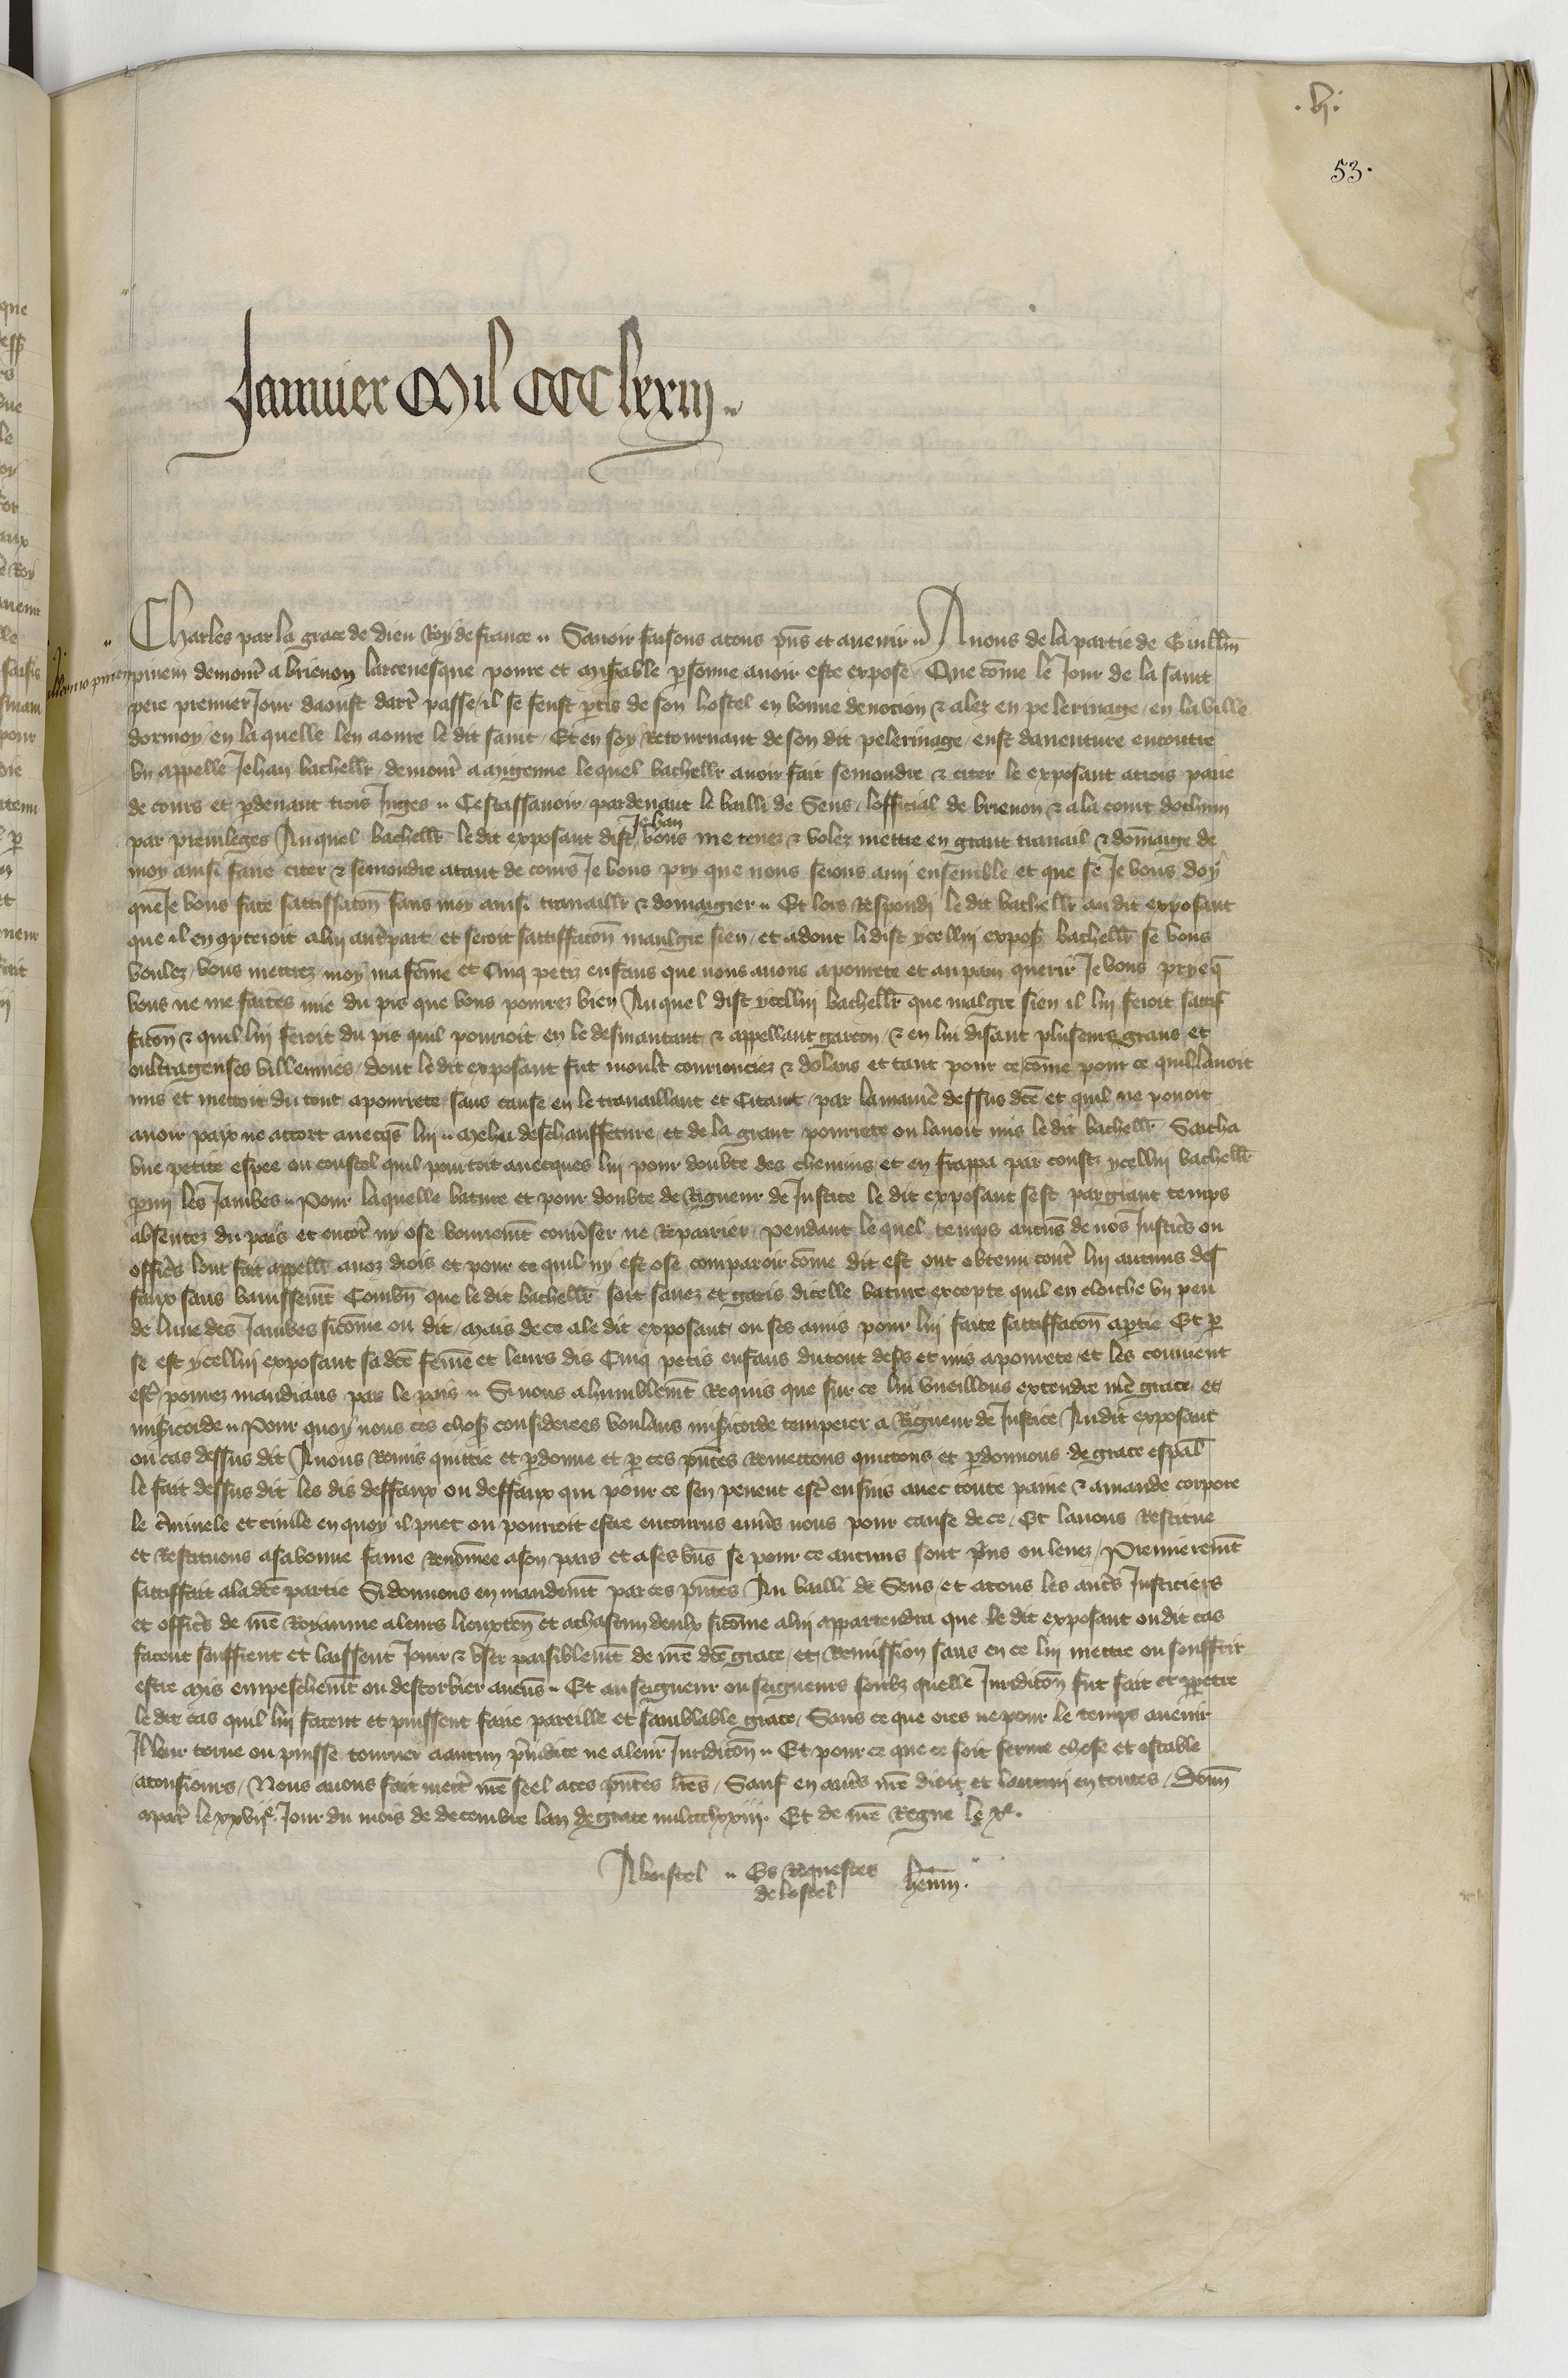 .vj.
53.
Januier Mil CCC lxxiij
Charles par la grace de dieu Roy de france Sauoir faisons atous pns et auenir Auons de la partie de Guillm
pineu demour a brienon larceuesque poure et misable psonne auoir este expose Que come le Jour de la saint
pere premier Jour daoust darr passe il se feust ptis de son hostel en bonne deuocion & alez en pelerinage en la ville
dormoy en la quelle len aoure le dit saint Et en soy Retournant de son dit pelerinage eust dauenture encontre
vn appelle Jehan bachellr demour a augenne lequel bachellr auoir fait semondre & citer le exposant atrois paire
de cours et pdeuant trois Juges Cestassauoir pardeuant le bailli de Sens lofficial de brienon & a la court dothun
Jehan
par preuileges Auquel bachellr le dit exposant dist vous me tenez & volez mettre en grant trauail & domaige de
moy ainsi faire citer & semondre atant de cours Je vous pry que nous soions ami ensemble et que se Je vous doy
que Je vous face sattiffacon sans moy ainsi trauaillr & domaigier Et lors Respondi le dit bachellr au dit exposant
que il en opteroit a lui autrpart et feroit sattiffacon maulgre sien et adont li dist ycellui expos bachellr se vous
voulez vous mettrez moy ma feme et Cinq petiz enfans que nous auons apourete et au pain querir Je vous prye q
vous ne me faites mie du pis que vous pourrez bien Auquel dist ycellui bachellr que malgre sien il lui feroit sattif
facon & quil lui feroit du pis quil pourroit en le desmantant & appellant garcon & en lui disant plusieurs grans et
oultrageuses villennies dont le dit exposant fut moult courrouciez & dolans et tant pour ce come pour ce quil lauoit
mis et mettoit du tout apourrete sans cause en le trauaillant et Citant par la manie dessus dce et quil ne pouoit
auoir paix ne accort auecqs lui meheu deschauffeture et de la grant pourrete ou lauoit mis le dit bachellr Saicha
vne petite espee ou coustel quil pourtoit auecques lui pour doubte des chemins et en frappa par coustz ycellui bachellr
pmi les Jambes Pour laquelle bature et pour doubte de Rigueur de Justice le dit exposant sest par grant temps
absentez du pais et encor ny ose bonnemt conuser ne Repairier pendant le quel temps aucus de nos Justics ou
offics lont fait appellr auoz drois et pour ce quil ny est ose comparoir come dit est ont obtenu contr lui aucuns def
faux sans banissemt Combn que le dit bachellr soit sanez et garis dicelle bature excepte quil en cloiche vn peu
de lune des Jambes sicome on dit mais de ce a le dit exposant ou ses amis pour lui faite sattiffacon aptie Et p
se est ycellui exposant sa dce feme et leurs dis Cinq petis enfans du tout defs et mis apourete et les conuient
estr poures mandians par le pais Si nous a humblemt Requis que sur ce lui vueillons extendre nre grace et
misicorde Pour quoy nous ces choses considerees voulans misicorde temperer a Rigueur de Justice Audit exposant
ou cas dessus dit Auons Remis quittie et pdonne et p ces pntes Remettons quictons et pdonnons de grace espal
le fait dessus dit les dis deffaux ou deffaux qui pour ce sen peuent estr ensuis auec toute paine & amande corpore
le criminele et ciuile en quoy il puet ou pourroit estre encourus enuers nous pour cause de ce Et lauons Restitue
et Restituons asabonne fame Renomee a son pais et a ses bns se pour ce aucuns sont pris ou leuez Premieremt
sattiffait ala dce partie Si donnons en mandemt par ces pntes Au bailli de Sens et atous les autrs Justiciers
et offics de nre Royaume a leurs lieuxten et achascun deulx sicome a lui appartendra que le dit exposant ou dit cas
facent souffrent et laissent Jouir & vser paisiblemt de nre dce grace et Remission sans en ce lui mettre ou souffrir
estre mis empeschemt ou destorbier aucus Et au seigneur ou seigneurs soubz quelle Juridicon fut fait et ppetre
le dit cas quil lui facent et puissent faire pareille et samblable grace Sans ce que ores ne pour le temps auenir
A leur torne ou puisse tourner a aucun preiudice ne aleur Juridicon Et pour ce que ce soit ferme chose et estable
atousiours Nous auons fait mectr nre seel aces pntes lres Sauf en autrs nre droit et lautrui en toutes Donn
apar le xxvije Jour du mois de decembre lan de grace mil ccc lxxiij Et de nre Regne le xe.
Es Requestes
de lostel
henin.